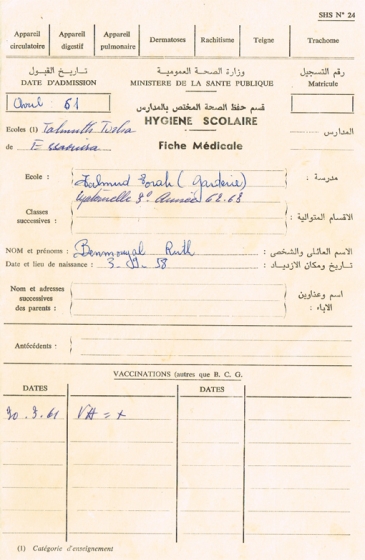 SHS Nº 24
Appareil circulatoire
Appareil digestif
Appareil pulmonaire
Dermatoses
Rachitisme
Teigne
Trachome
تاريخ القبول
وزارة الصحة العمومية
رقم التسجيل
DATE D'ADMISSION
MINISTERE DE LA SANTE PUBLIQUE
Matricule
Avril 61
قسم حفظ الصحة المختص بالمدارس
HYGIENE SCOLAIRE
Ecoles (1) Talmuth Tora
المدارس
de Essaouira
Fiche Médicale
Ecole : Talmud Torah (Garderie)
مدرسة :
Maternelle 3º Année 62.63
Classes successives :
الاقسام المتوالية :
NOM et prénoms : Benmouyal Ruth
الاسم العائلى والشخصى :
Date et lieu de naissance : 3 - - 58
تاريخ ومكان الازدياد :
Nom et adresses successives des parents :
اسم وعناوين الاباء :
Antécédents :
VACCINATIONS (autres que B. C. G.
DATES
DATES
20.3.61 = +
(1) Catégorie d'enseignement